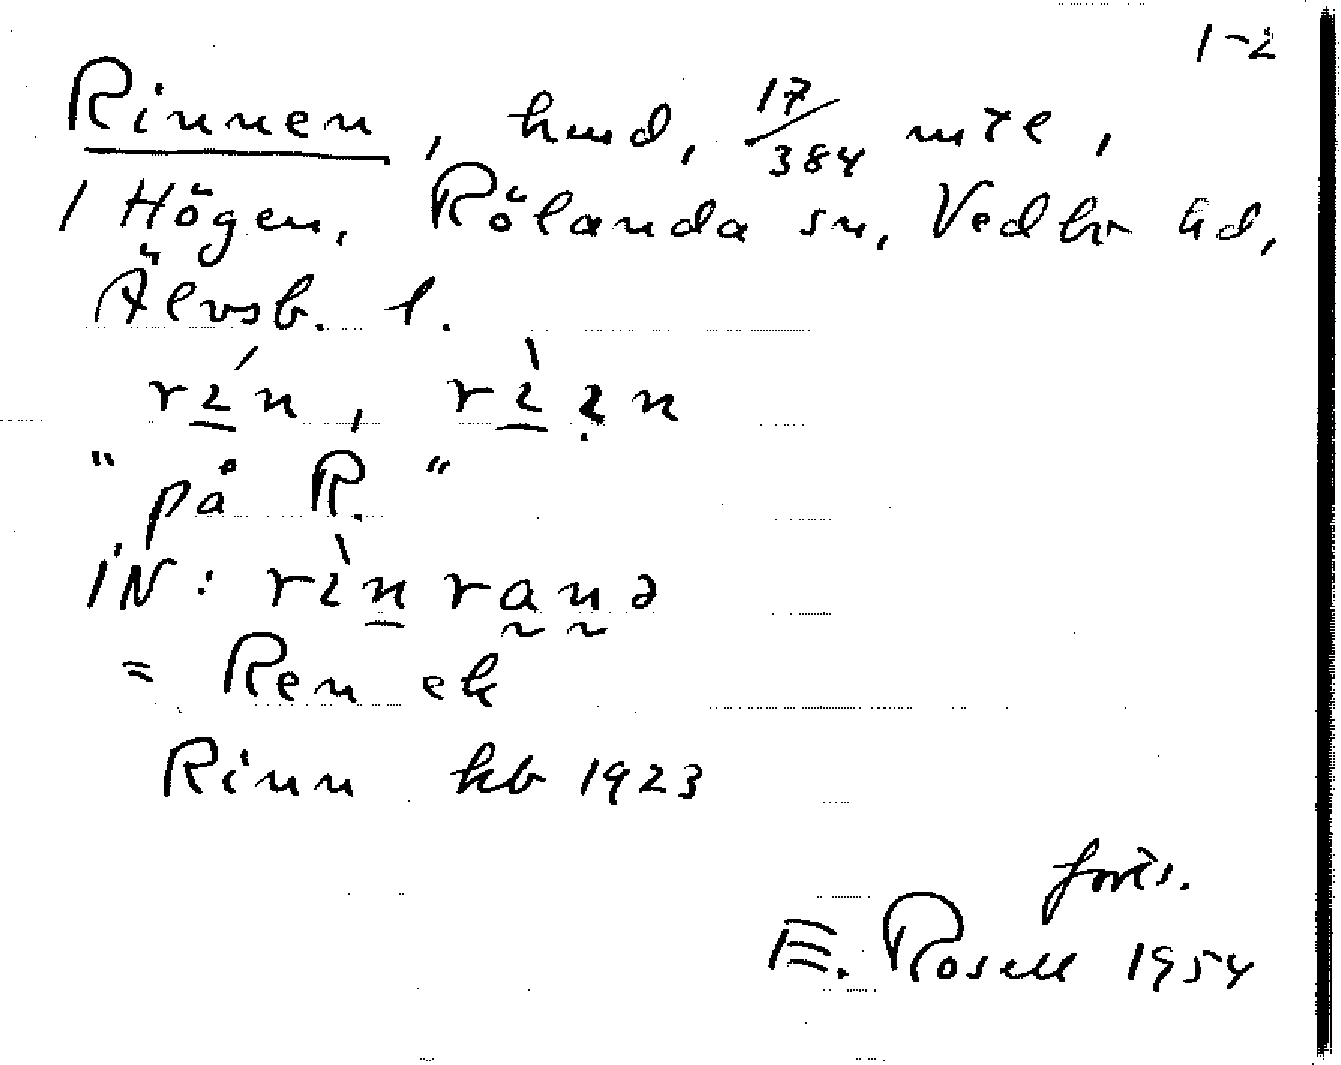 1-2
Rinnen, hmd, 17/384 mtl,
1 Högen, Rölanda sn, Vedbo hd,
Älvsb. l.
"på R."
IN:
= Ren ek
Rinn kb 1923
forts.
E. Rosell 1954